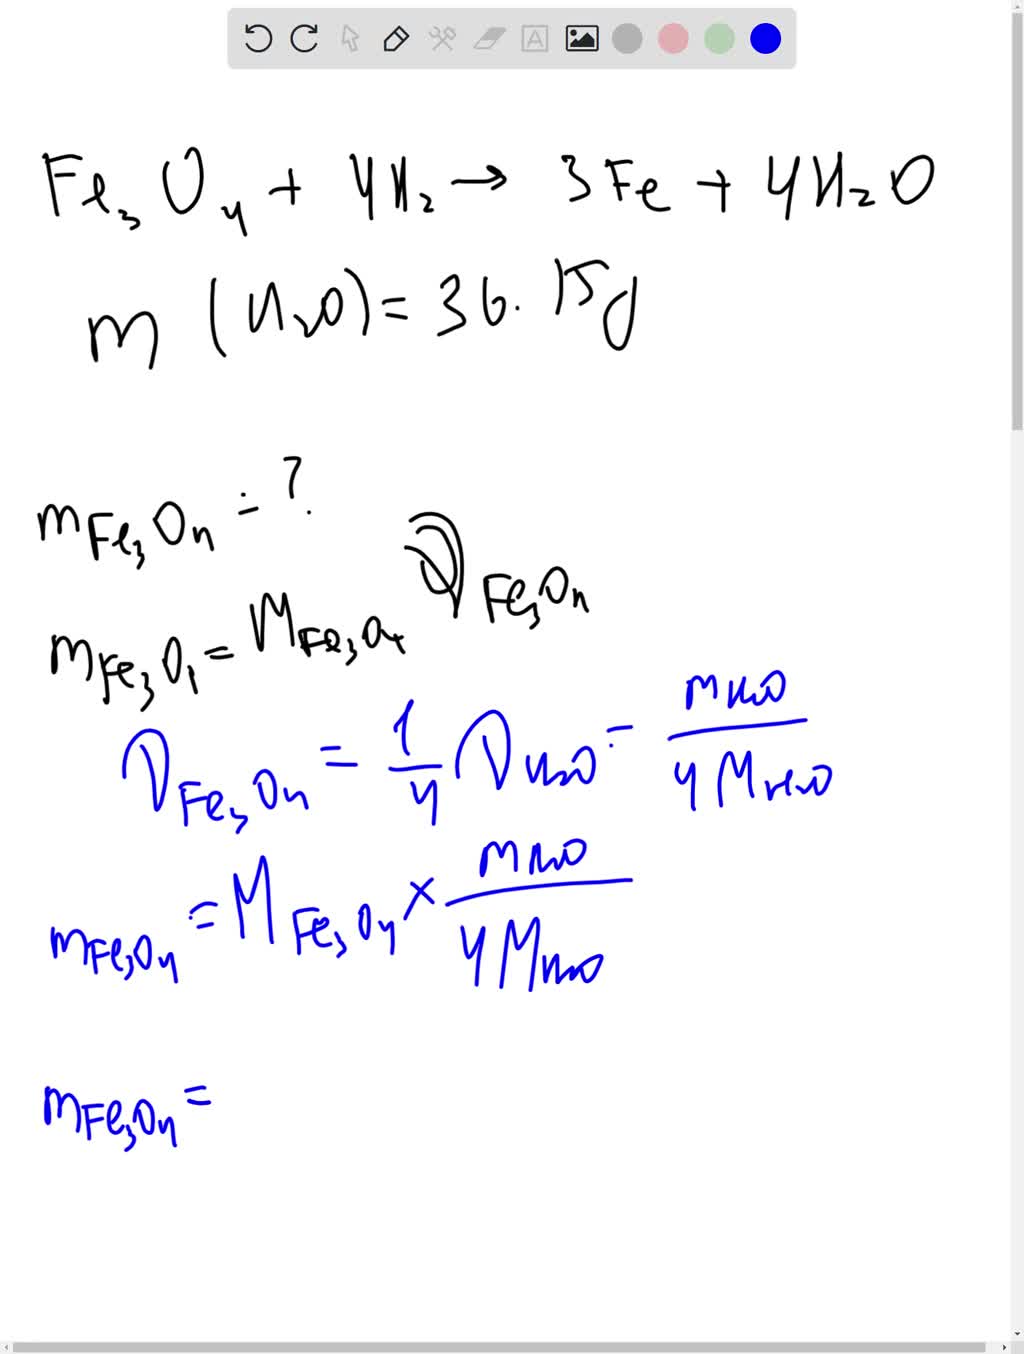 Fe₃O₄ + 4H₂ → 3Fe + 4H₂O
m (H₂O) = 36.15g
mFe₃O₄ = ?
mFe₃O₄ = MFe₃O₄ νFe₃O₄
νFe₃O₄ = 1/4 νH₂O = mH₂O / 4MH₂O
mFe₃O₄ = MFe₃O₄ × mH₂O / 4MH₂O
mFe₃O₄ =